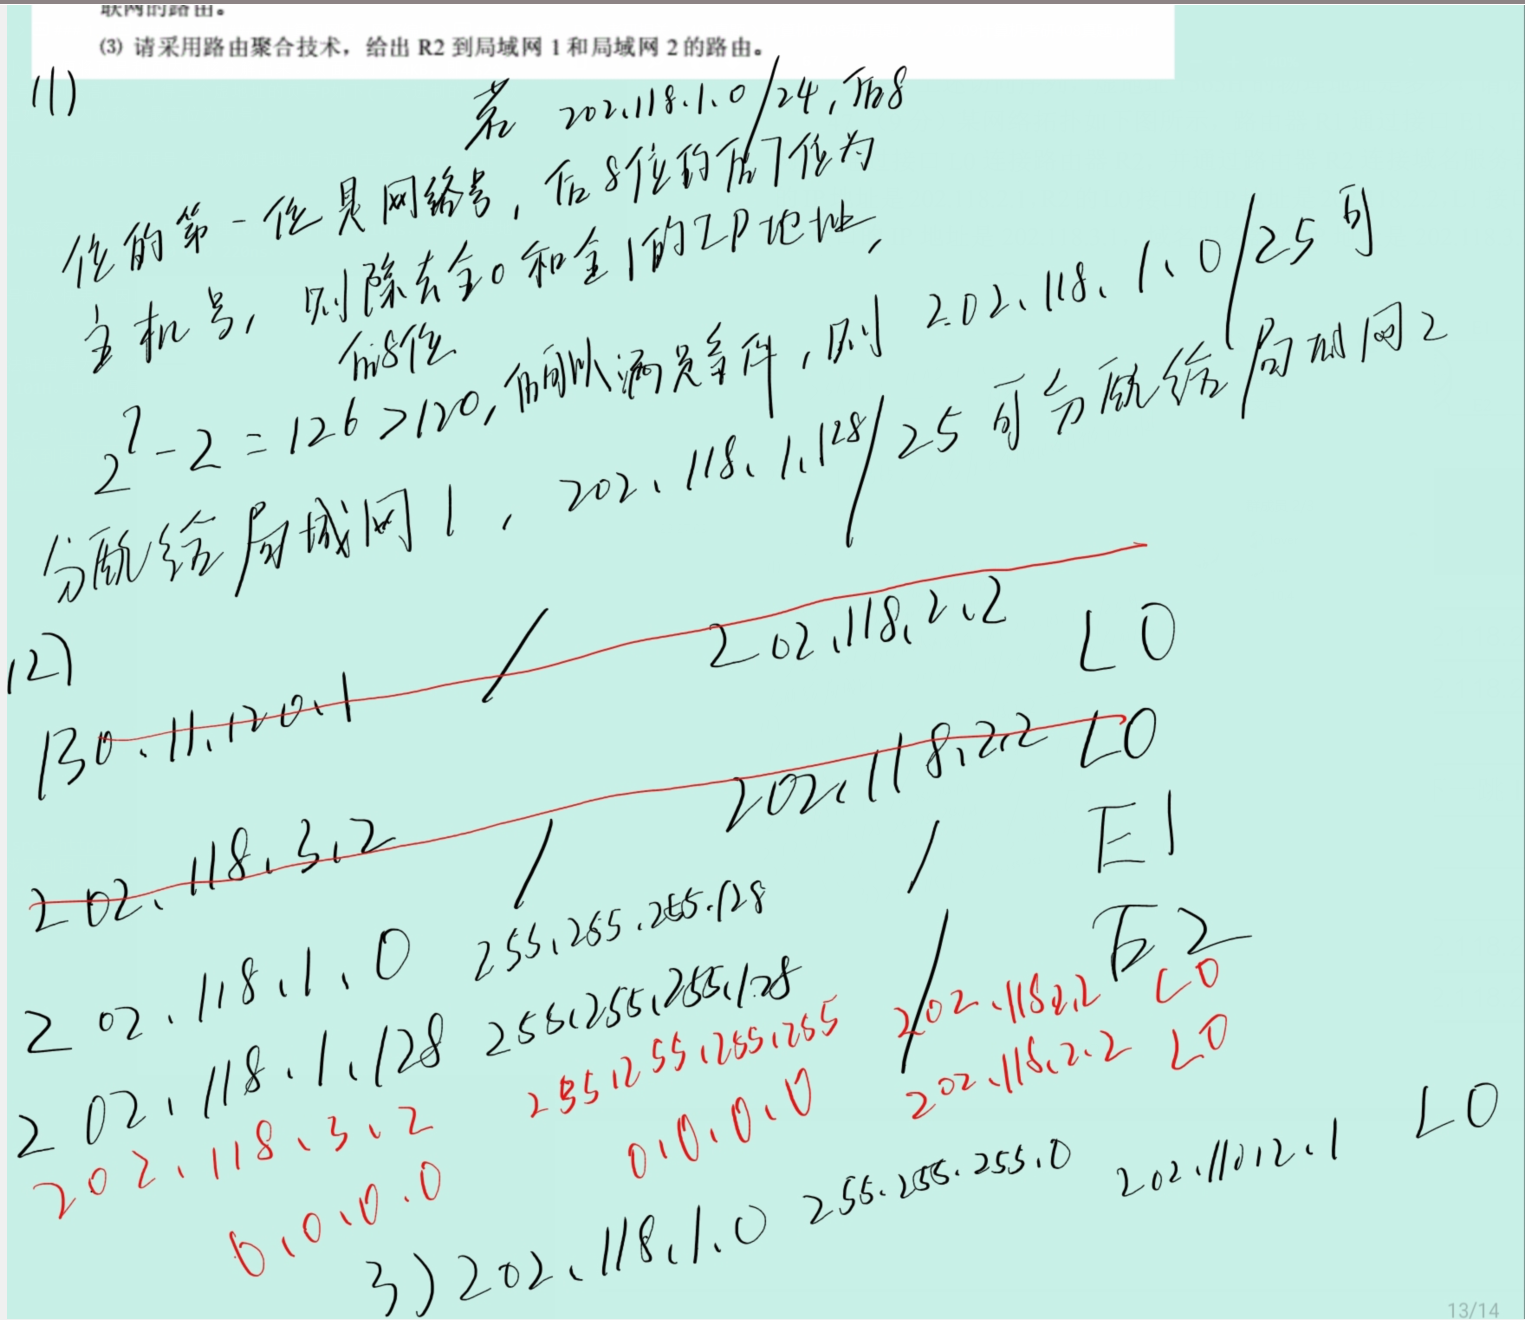 联网的路由。
(3) 请采用路由聚合技术，给出 R2 到局域网 1 和局域网 2 的路由。
(1)
若 202.118.1.0/24, 后8
位的第一位是网络号, 后8位的后7位为
主机号, 则除去全0和全1的IP地址,
后8位
2^7-2=126>120, 所以满足条件, 则 202.118.1.0/25可
分配给局域网1, 202.118.1.128/25可分配给局域网2
(2)
130.11.120.1 / 202.118.2.2 L0
202.118.3.2 / 202.118.2.2 L0
202.118.1.0 255.255.255.128 / E1
202.118.1.128 255.255.255.128 / E2
202.118.3.2 255.255.255.255 202.118.2.2 L0
0.0.0.0 0.0.0.0 202.118.2.2 L0
3) 202.118.1.0 255.255.255.0 202.118.2.1 L0
13/14